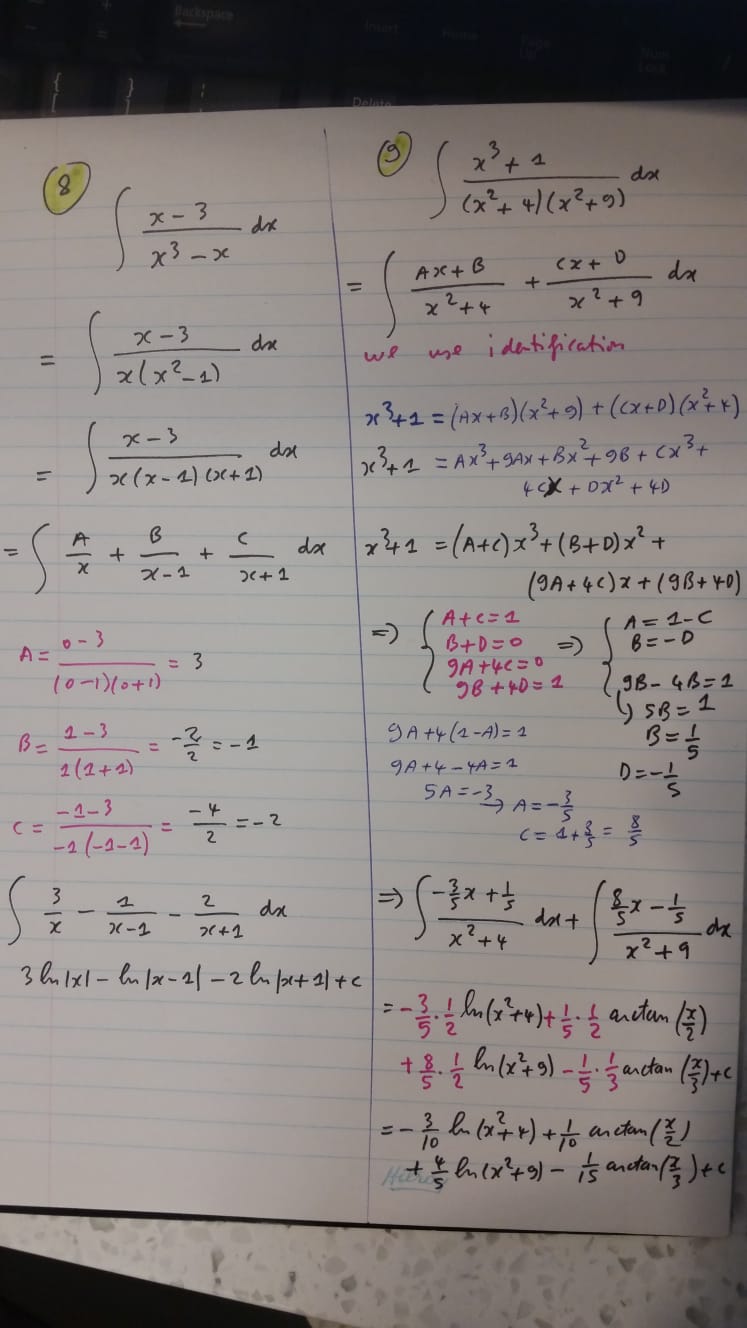 Backspace
Insert
Home
Page Up
Num Lock
+
=
{
[
}
]
:
Delete
8
∫ (x - 3)/(x³ - x) dx
= ∫ (x - 3)/(x(x² - 1)) dx
= ∫ (x - 3)/(x(x - 1)(x + 1)) dx
= ∫ A/x + B/(x - 1) + C/(x + 1) dx
A = (0 - 3)/((0 - 1)(0 + 1)) = 3
B = (1 - 3)/(1(1 + 1)) = -2/2 = -1
C = (-1 - 3)/(-1(-1 - 1)) = -4/2 = -2
∫ 3/x - 1/(x - 1) - 2/(x + 1) dx
3 ln|x| - ln|x - 1| - 2 ln|x + 1| + c
9
∫ (x³ + 1)/((x² + 4)(x² + 9)) dx
= ∫ (Ax + B)/(x² + 4) + (Cx + D)/(x² + 9) dx
we use identification
x³ + 1 = (Ax + B)(x² + 9) + (Cx + D)(x² + 4)
x³ + 1 = Ax³ + 9Ax + Bx² + 9B + Cx³ +
4Cx + Dx² + 4D
x³ + 1 = (A + C)x³ + (B + D)x² +
(9A + 4C)x + (9B + 4D)
=> { A + C = 1
B + D = 0
9A + 4C = 0
9B + 4D = 1
=> { A = 1 - C
B = -D
9B - 4B = 1
↳ 5B = 1
B = 1/5
D = -1/5
9A + 4(1 - A) = 1
9A + 4 - 4A = 1
5A = -3 → A = -3/5
C = 1 + 3/5 = 8/5
=> ∫ (-3/5 x + 1/5)/(x² + 4) dx + ∫ (8/5 x - 1/5)/(x² + 9) dx
= -3/5 · 1/2 ln(x² + 4) + 1/5 · 1/2 arctan(x/2)
+ 8/5 · 1/2 ln(x² + 9) - 1/5 · 1/3 arctan(x/3) + c
= -3/10 ln(x² + 4) + 1/10 arctan(x/2)
+ 4/5 ln(x² + 9) - 1/15 arctan(x/3) + c